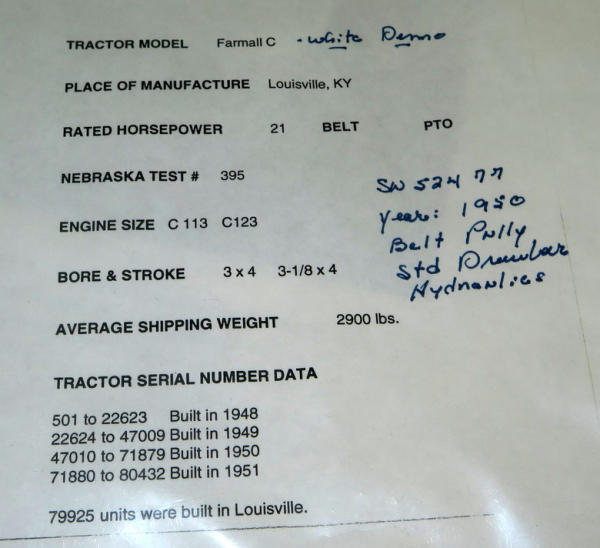 TRACTOR MODEL Farmall C - White Demo
PLACE OF MANUFACTURE Louisville, KY
RATED HORSEPOWER 21 BELT PTO
NEBRASKA TEST # 395
SN 52477
ENGINE SIZE C 113 C123
Year: 1950
Belt Pully
BORE & STROKE 3 x 4 3-1/8 x 4
Std Drawbar
Hydraulics
AVERAGE SHIPPING WEIGHT 2900 lbs.
TRACTOR SERIAL NUMBER DATA
501 to 22623 Built in 1948
22624 to 47009 Built in 1949
47010 to 71879 Built in 1950
71880 to 80432 Built in 1951
79925 units were built in Louisville.